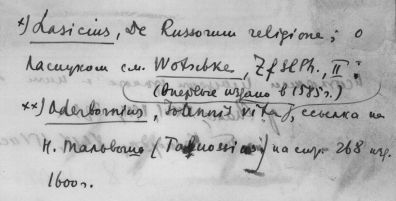 *) Lasicius, De Russorum religione; о
Ласицком см. Wotschke, Zf slPh., II;
(впервые издано в 1585 г.)
**) Oderbornius, vita, ссылка на
Н. на стр. 268 изд.
1600 г.